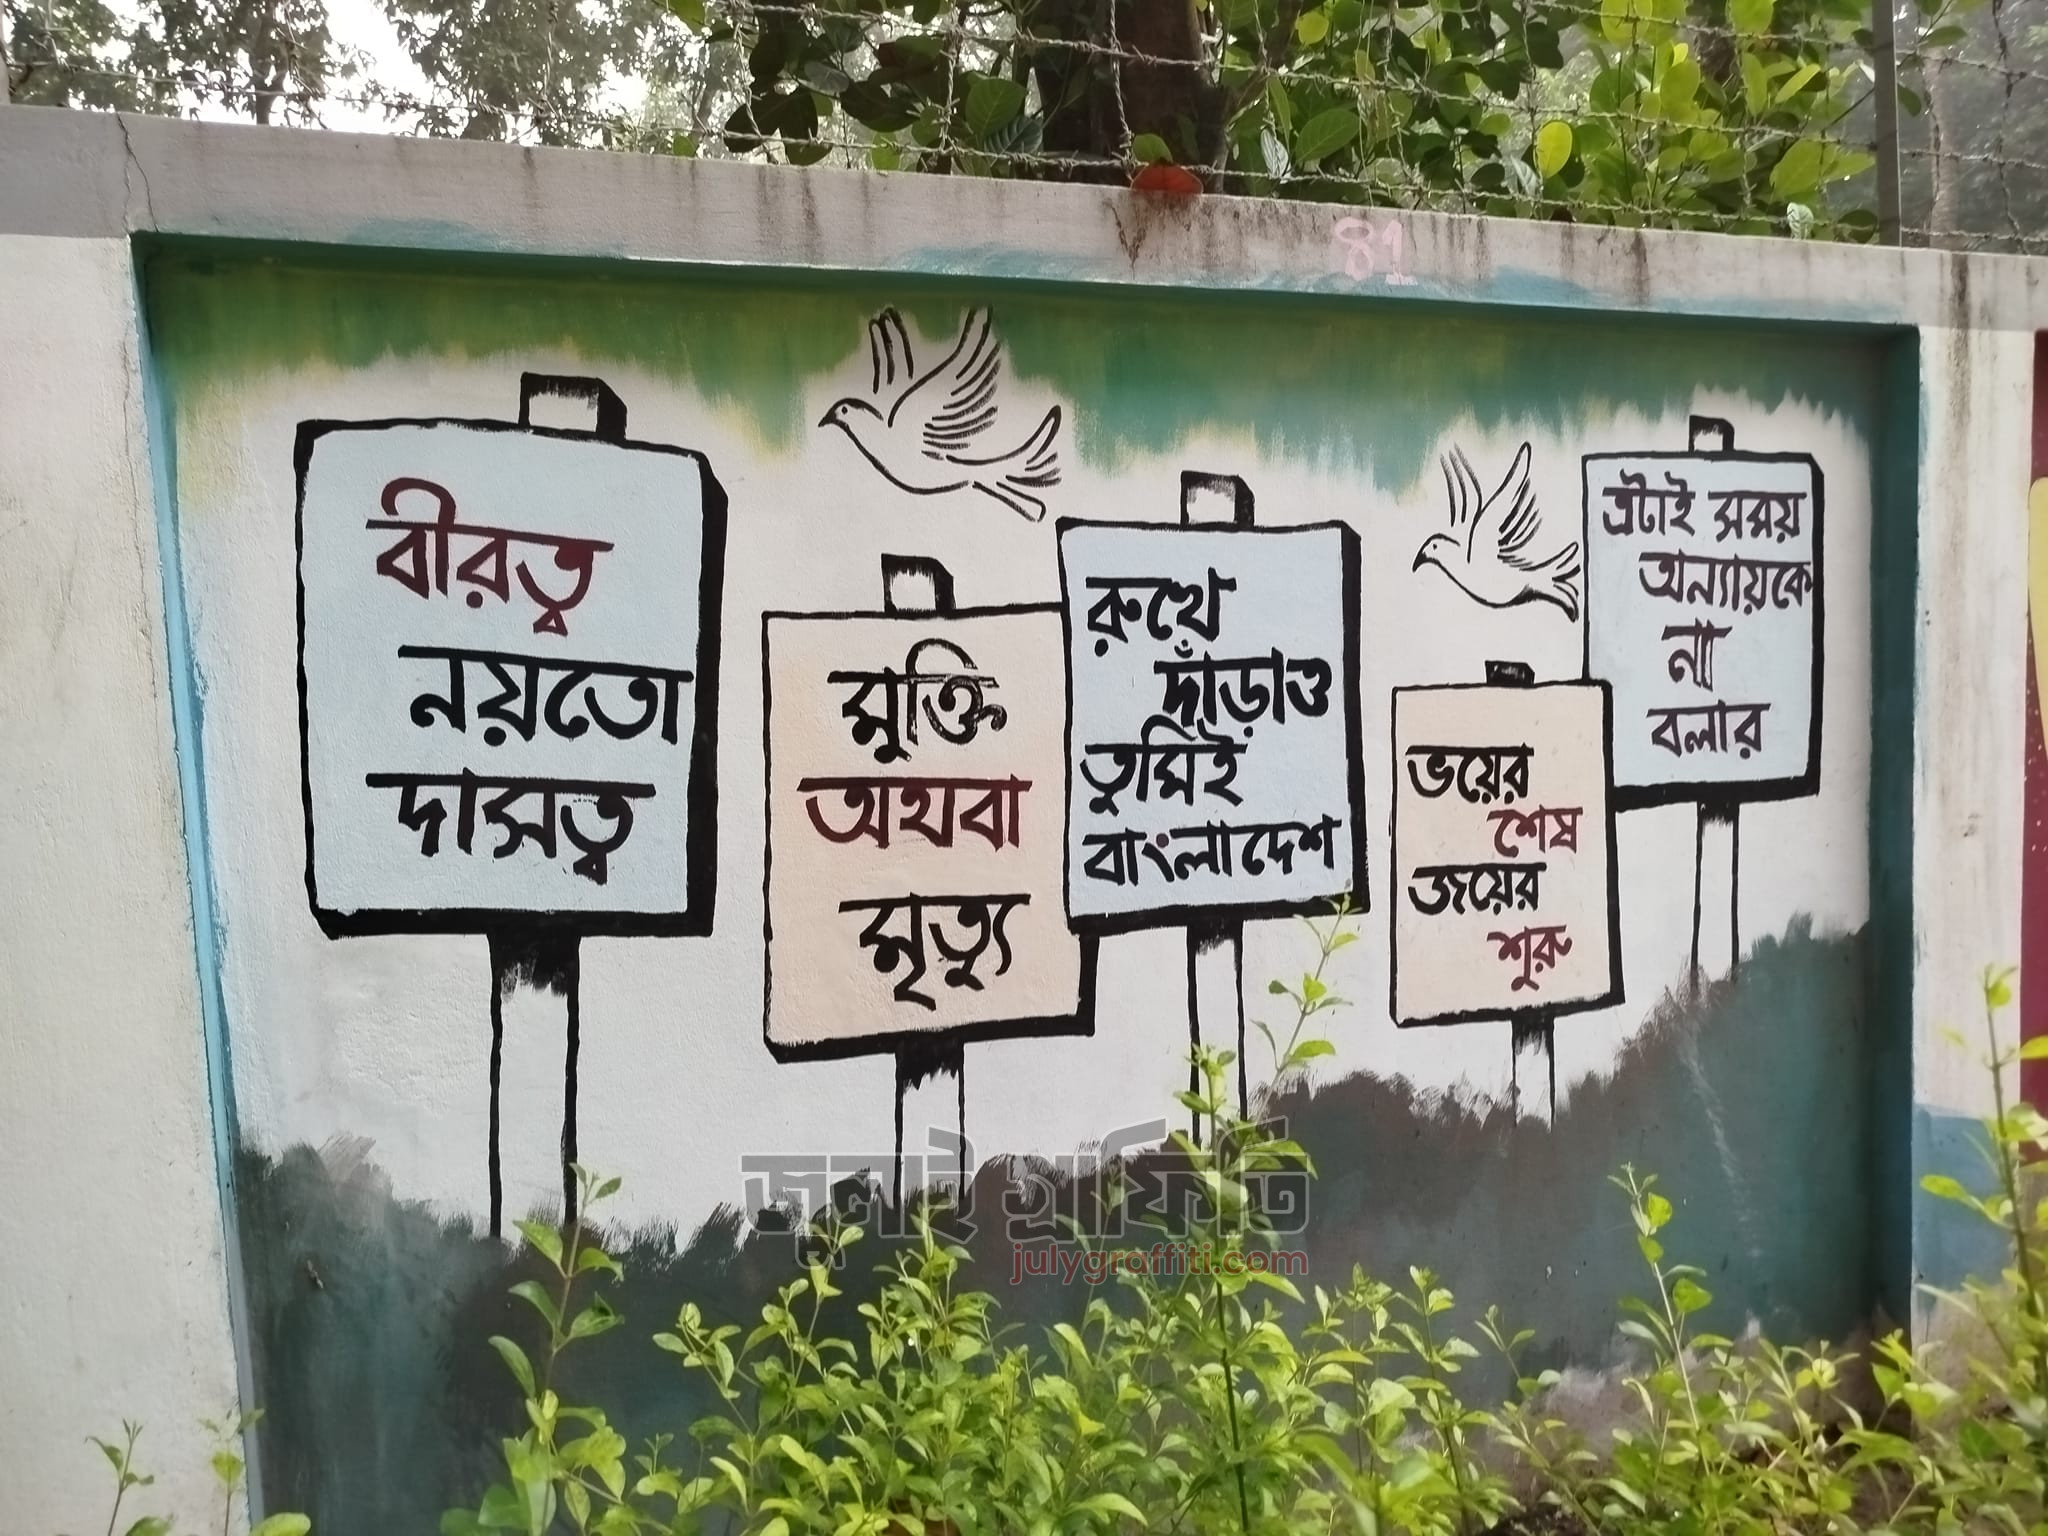 81
বীরত্ব
নয়তো
দাসত্ব
মুক্তি
অথবা
মৃত্যু
রুখে
দাঁড়াও
তুমিই
বাংলাদেশ
ভয়ের
শেষ
জয়ের
শুরু
এটাই সময়
অন্যায়কে
না
বলার
জুলাই গ্রাফিতি
julygraffiti.com